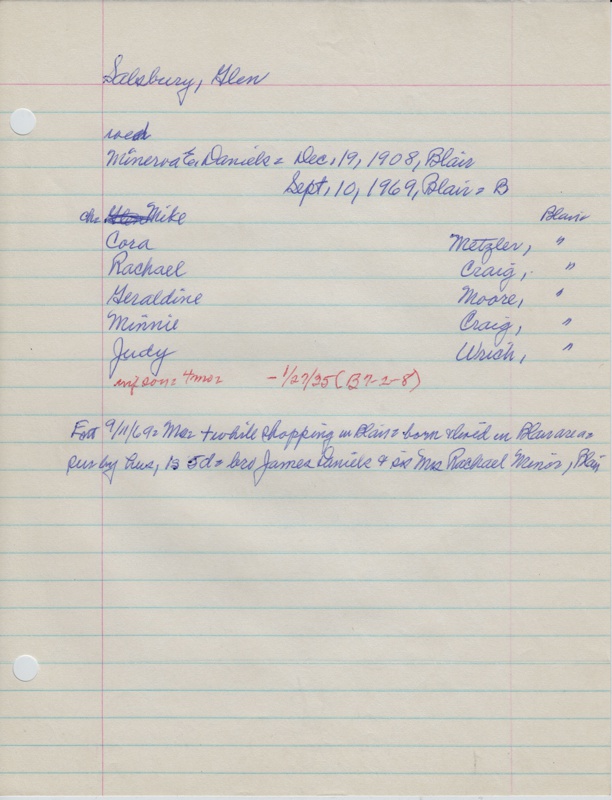 Salsbury, Glen
wed
Minerva E. Daniels = Dec. 19, 1908, Blair
Sept. 10, 1969, Blair = B
chr Mike Blair
Cora Metzler, "
Rachael Craig, "
Geraldine Moore, "
Minnie Craig, "
Judy Wrich, "
inf son = 4 mos - 1/27/35 (B7-2-8)
Ent 9/11/69 = Mrs + while shopping in Blair = born & lived in Blair area =
sur by hus, 1s 5d = bro James Daniels & sis Mrs Rachael Minor, Blair